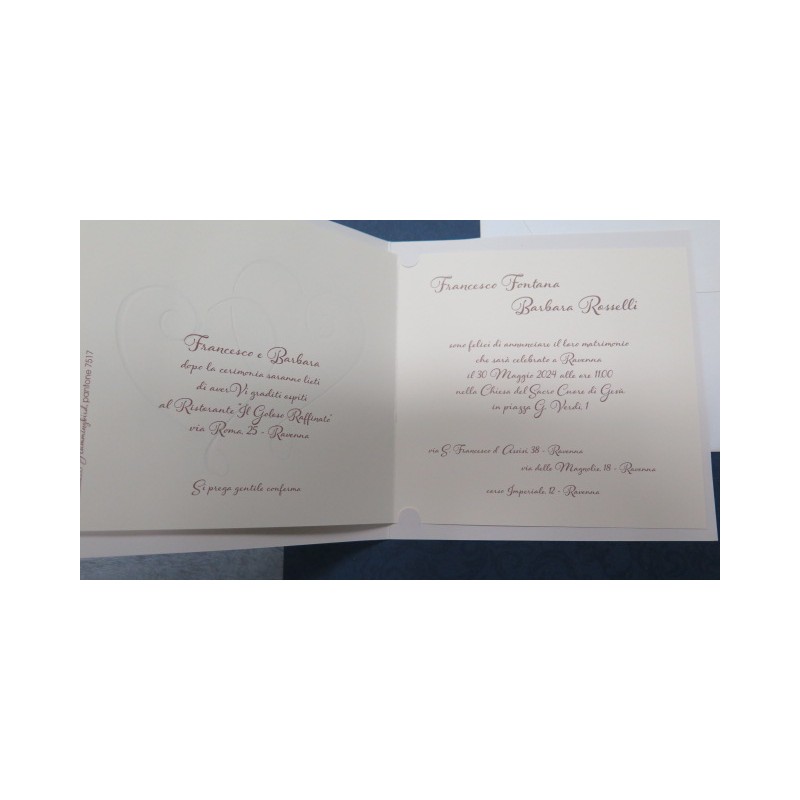 Hummingbird, pantone 7517
Francesco e Barbara
dopo la cerimonia saranno lieti
di averVi graditi ospiti
al Ristorante "Il Goloso Raffinato"
via Roma, 25 - Ravenna
Si prega gentile conferma
Francesco Fontana
Barbara Rosselli
sono felici di annunciare il loro matrimonio
che sarà celebrato a Ravenna
il 30 Maggio 2024 alle ore 11.00
nella Chiesa del Sacro Cuore di Gesù
in piazza G. Verdi, 1
via S. Francesco d'Assisi, 38 - Ravenna
via delle Magnolie, 18 - Ravenna
corso Imperiale, 12 - Ravenna